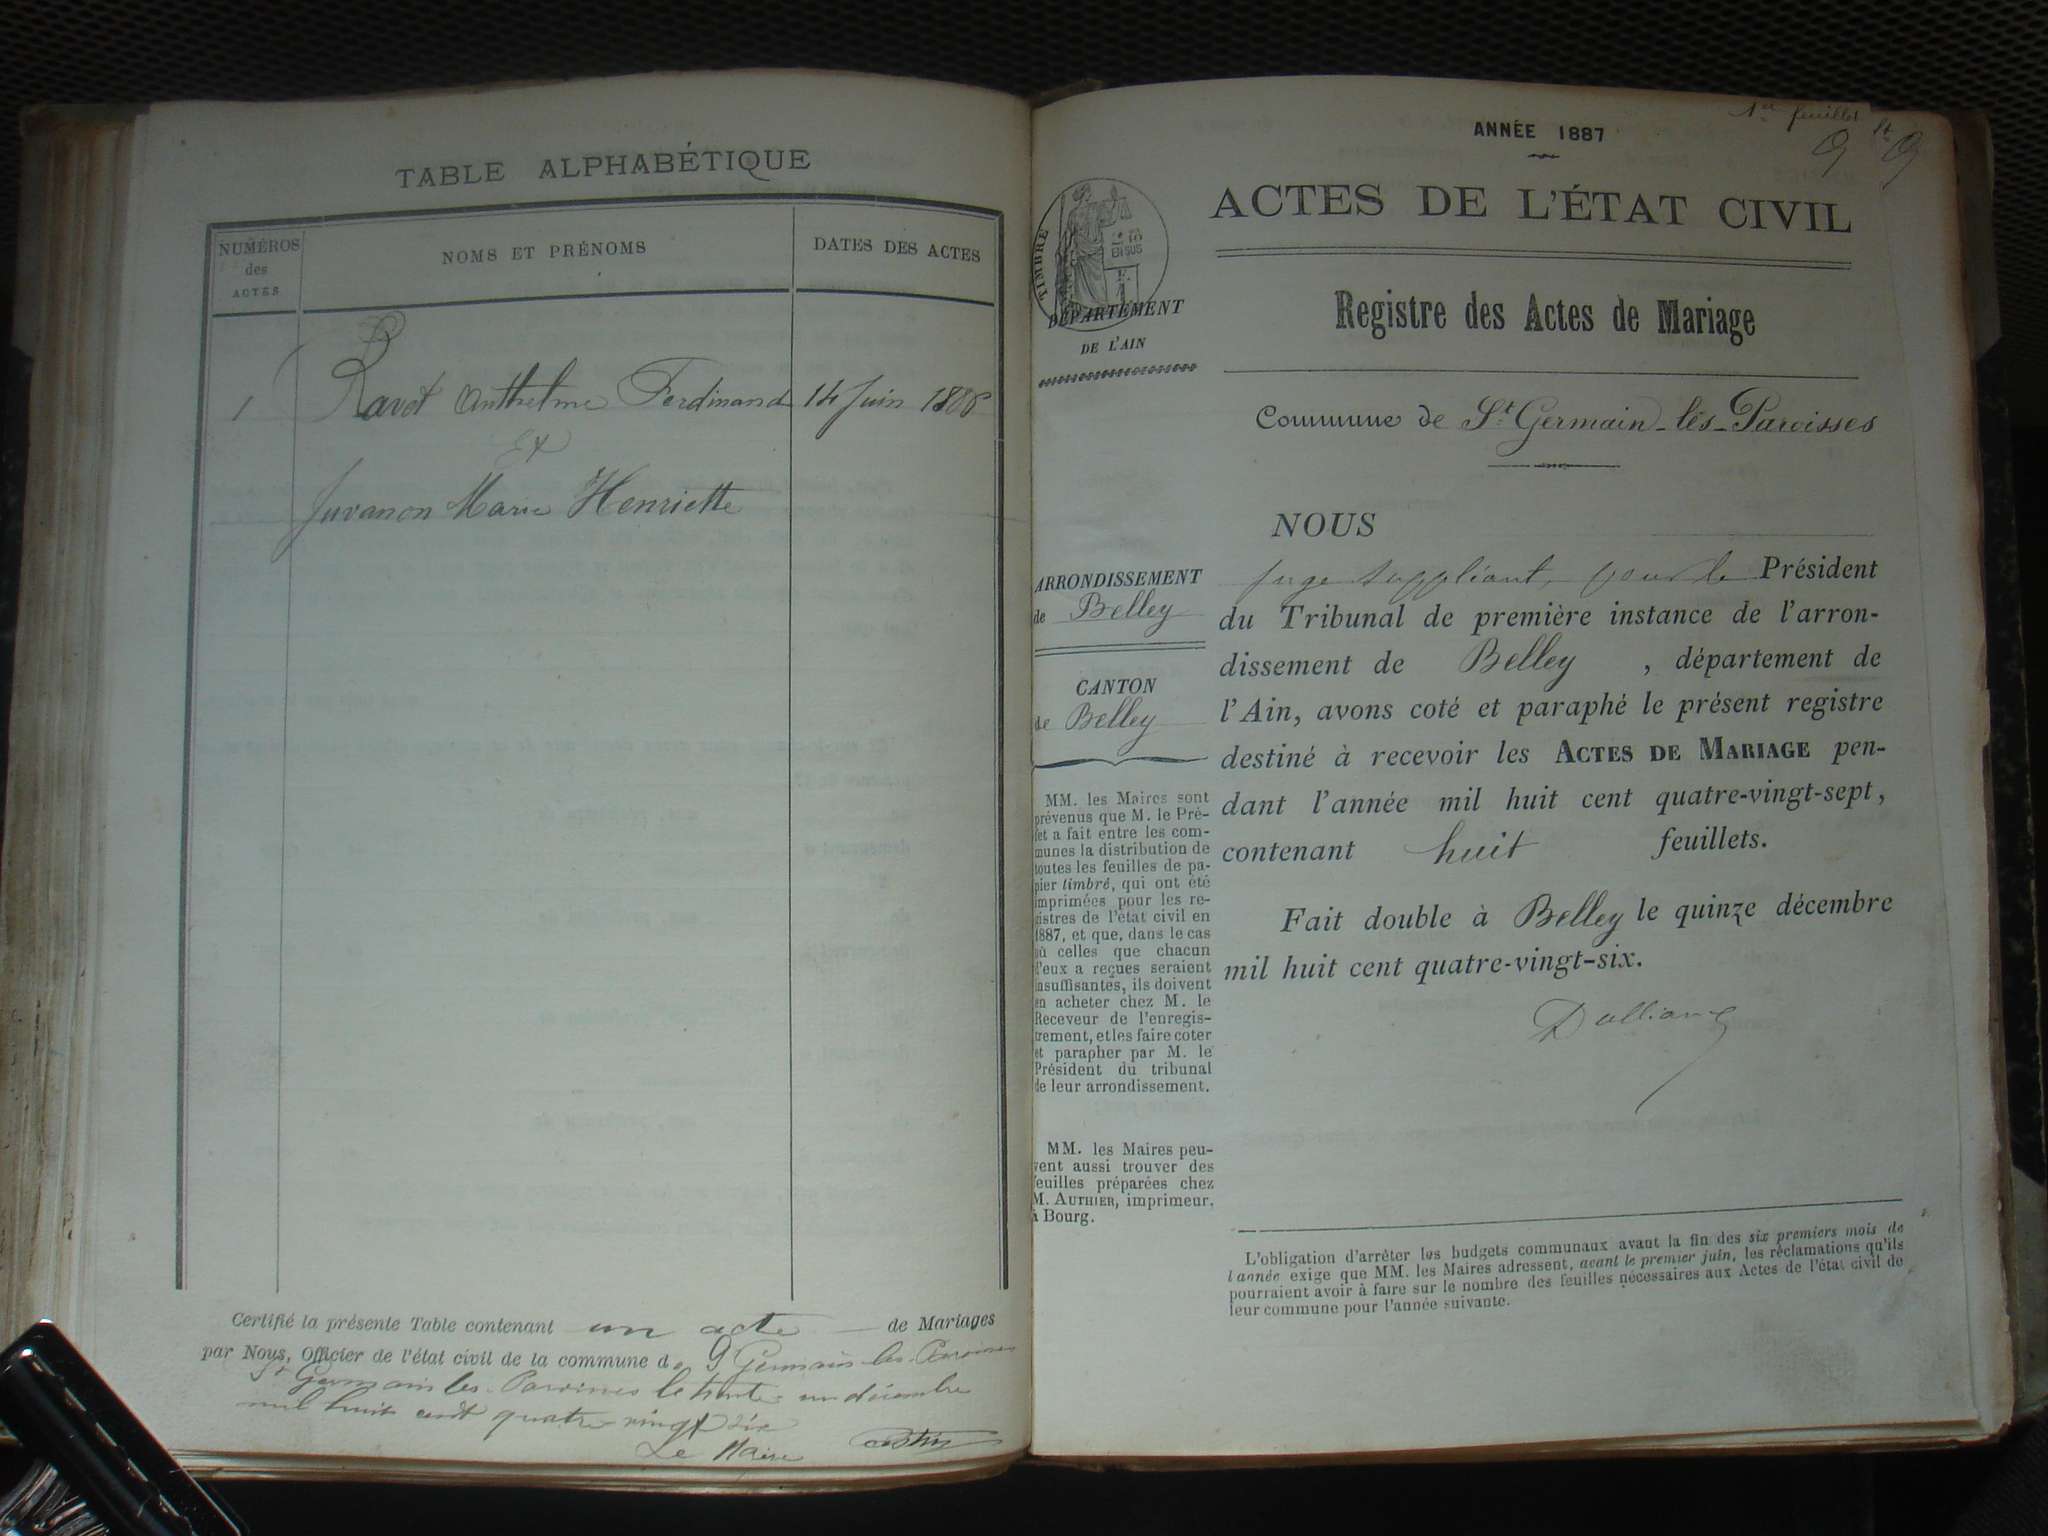 TABLE ALPHABÉTIQUE
NUMÉROS
des
ACTES
NOMS ET PRÉNOMS
DATES DES ACTES
1
Ravet Anthelme Ferdinand
14 Juin 1886
Et
Juvanon Marie Henriette
Certifié la présente Table contenant un acte de Mariages
par Nous, Officier de l'état civil de la commune de St Germain les Paroisses
St Germain les Paroisses le trente un décembre
mil huit cent quatre vingt six
Le Maire
1er feuillet
ANNÉE 1887
ACTES DE L'ÉTAT CIVIL
TIMBRE
DÉPARTEMENT
DE L'AIN
Registre des Actes de Mariage
Commune de St Germain-les-Paroisses
ARRONDISSEMENT
de Belley
CANTON
de Belley
MM. les Maires sont
prévenus que M. le Pré-
fet a fait entre les com-
munes la distribution de
toutes les feuilles de pa-
pier timbré, qui ont été
imprimées pour les re-
gistres de l'état civil en
1887, et que, dans le cas
où celles que chacun
d'eux a reçues seraient
insuffisantes, ils doivent
en acheter chez M. le
Receveur de l'enregis-
trement, et les faire coter
et parapher par M. le
Président du tribunal
de leur arrondissement.
MM. les Maires peu-
vent aussi trouver des
feuilles préparées chez
M. AUTHIER, imprimeur,
à Bourg.
NOUS
Juge suppléant, pour le Président
du Tribunal de première instance de l'arron-
dissement de Belley, département de
l'Ain, avons coté et paraphé le présent registre
destiné à recevoir les ACTES DE MARIAGE pen-
dant l'année mil huit cent quatre-vingt-sept,
contenant huit feuillets.
Fait double à Belley le quinze décembre
mil huit cent quatre-vingt-six.
L'obligation d'arrêter les budgets communaux avant la fin des six premiers mois de
l'année exige que MM. les Maires adressent, avant le premier juin, les réclamations qu'ils
pourraient avoir à faire sur le nombre des feuilles nécessaires aux Actes de l'état civil de
leur commune pour l'année suivante.